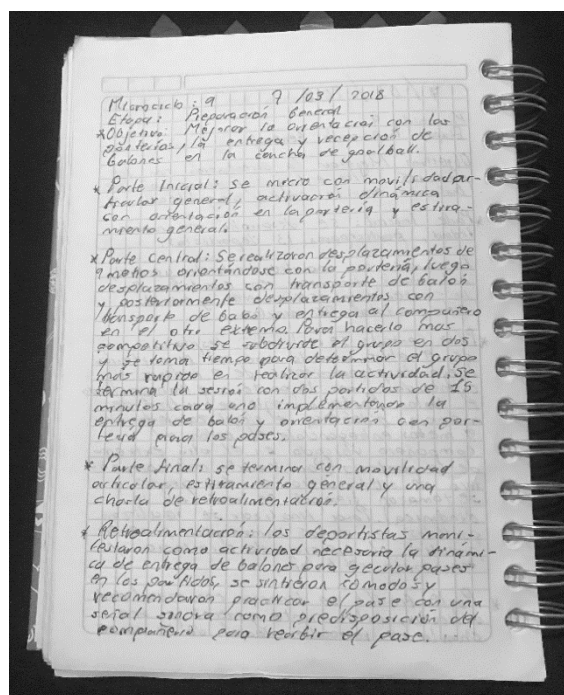 Microciclo: 9 7/03/2018
Etapa: Preparación General
* Objetivo: Mejorar la orientación con las
porterías, la entrega y recepción de
balones en la cancha de goalball.
* Parte Inicial: Se inicio con movilidad ar-
ticular general, activación dinámica
con orientación en la portería y estira-
miento general.
* Parte Central: Se realizaron desplazamientos de
9 metros orientándose con la portería, luego
desplazamientos con transporte de balón
y posteriormente desplazamientos con
transporte de balón y entrega al compañero
en el otro extremo. Para hacerlo mas
competitivo se subdivide el grupo en dos
y se toma tiempo para determinar el grupo
más rapido en realizar la actividad. Se
termina la sesión con dos partidos de 15
minutos cada uno implementando la
entrega de balón y orientación con por-
teria para los pases.
* Parte final: se termina con movilidad
articular, estiramiento general y una
charla de retroalimentación.
* Retroalimentación: los deportistas mani-
festaron como actividad necesaria la dinámi-
ca de entrega de balones para gecutar pases
en los partidos, se sintieron comodos y
recomendaron practicar el pase con una
señal sonora como predisposición del
compañero para recibir el pase.